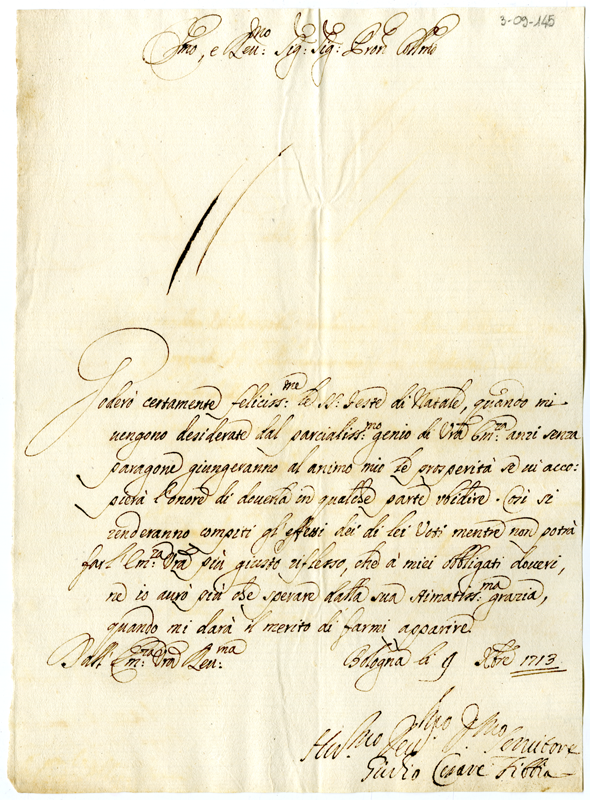 3-09-145
Emo, e Reu:mo Sig: Sig: Pron Collmo
Goderò certamente feliciss:me le S.te Feste di Natale, quando mi
uengono desiderate dal parcialiss:mo genio di Vra Em:za anzi senza
paragone giungeranno al animo mio le prosperità se ui acco-
pierà l'onore di douerla in qualche parte vbidire. Cosi si
renderanno compiti gl'effetti dei di lei Voti mentre non potrà
far l'Em:za Vra più giusto riflesso, che à miei obligati doueri,
ne io aurò più che sperare dalla sua stimatiss:ma grazia,
quando mi darà il merito di farmi apparire
Dall' Em:za Vra Reu:ma Bologna li 9 Xbre 1713
Hu:mo Deu:mo Servitore
Giulio Cesare Fibbia